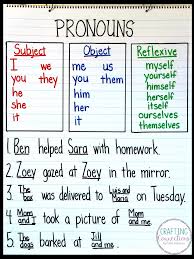 PRONOUNS
Subject Object Reflexive
I we
you they
he
she
it
me us
you them
him
her
it
myself
yourself
himself
herself
itself
ourselves
themselves
1. Ben helped Sara with homework.
2. Zoey gazed at Zoey in the mirror.
3. The box was delivered to Luis and Maria on Tuesday.
4. Mom and I took a picture of Mom and me.
5. The dogs barked at Jill and me.
CRAFTING
Connections